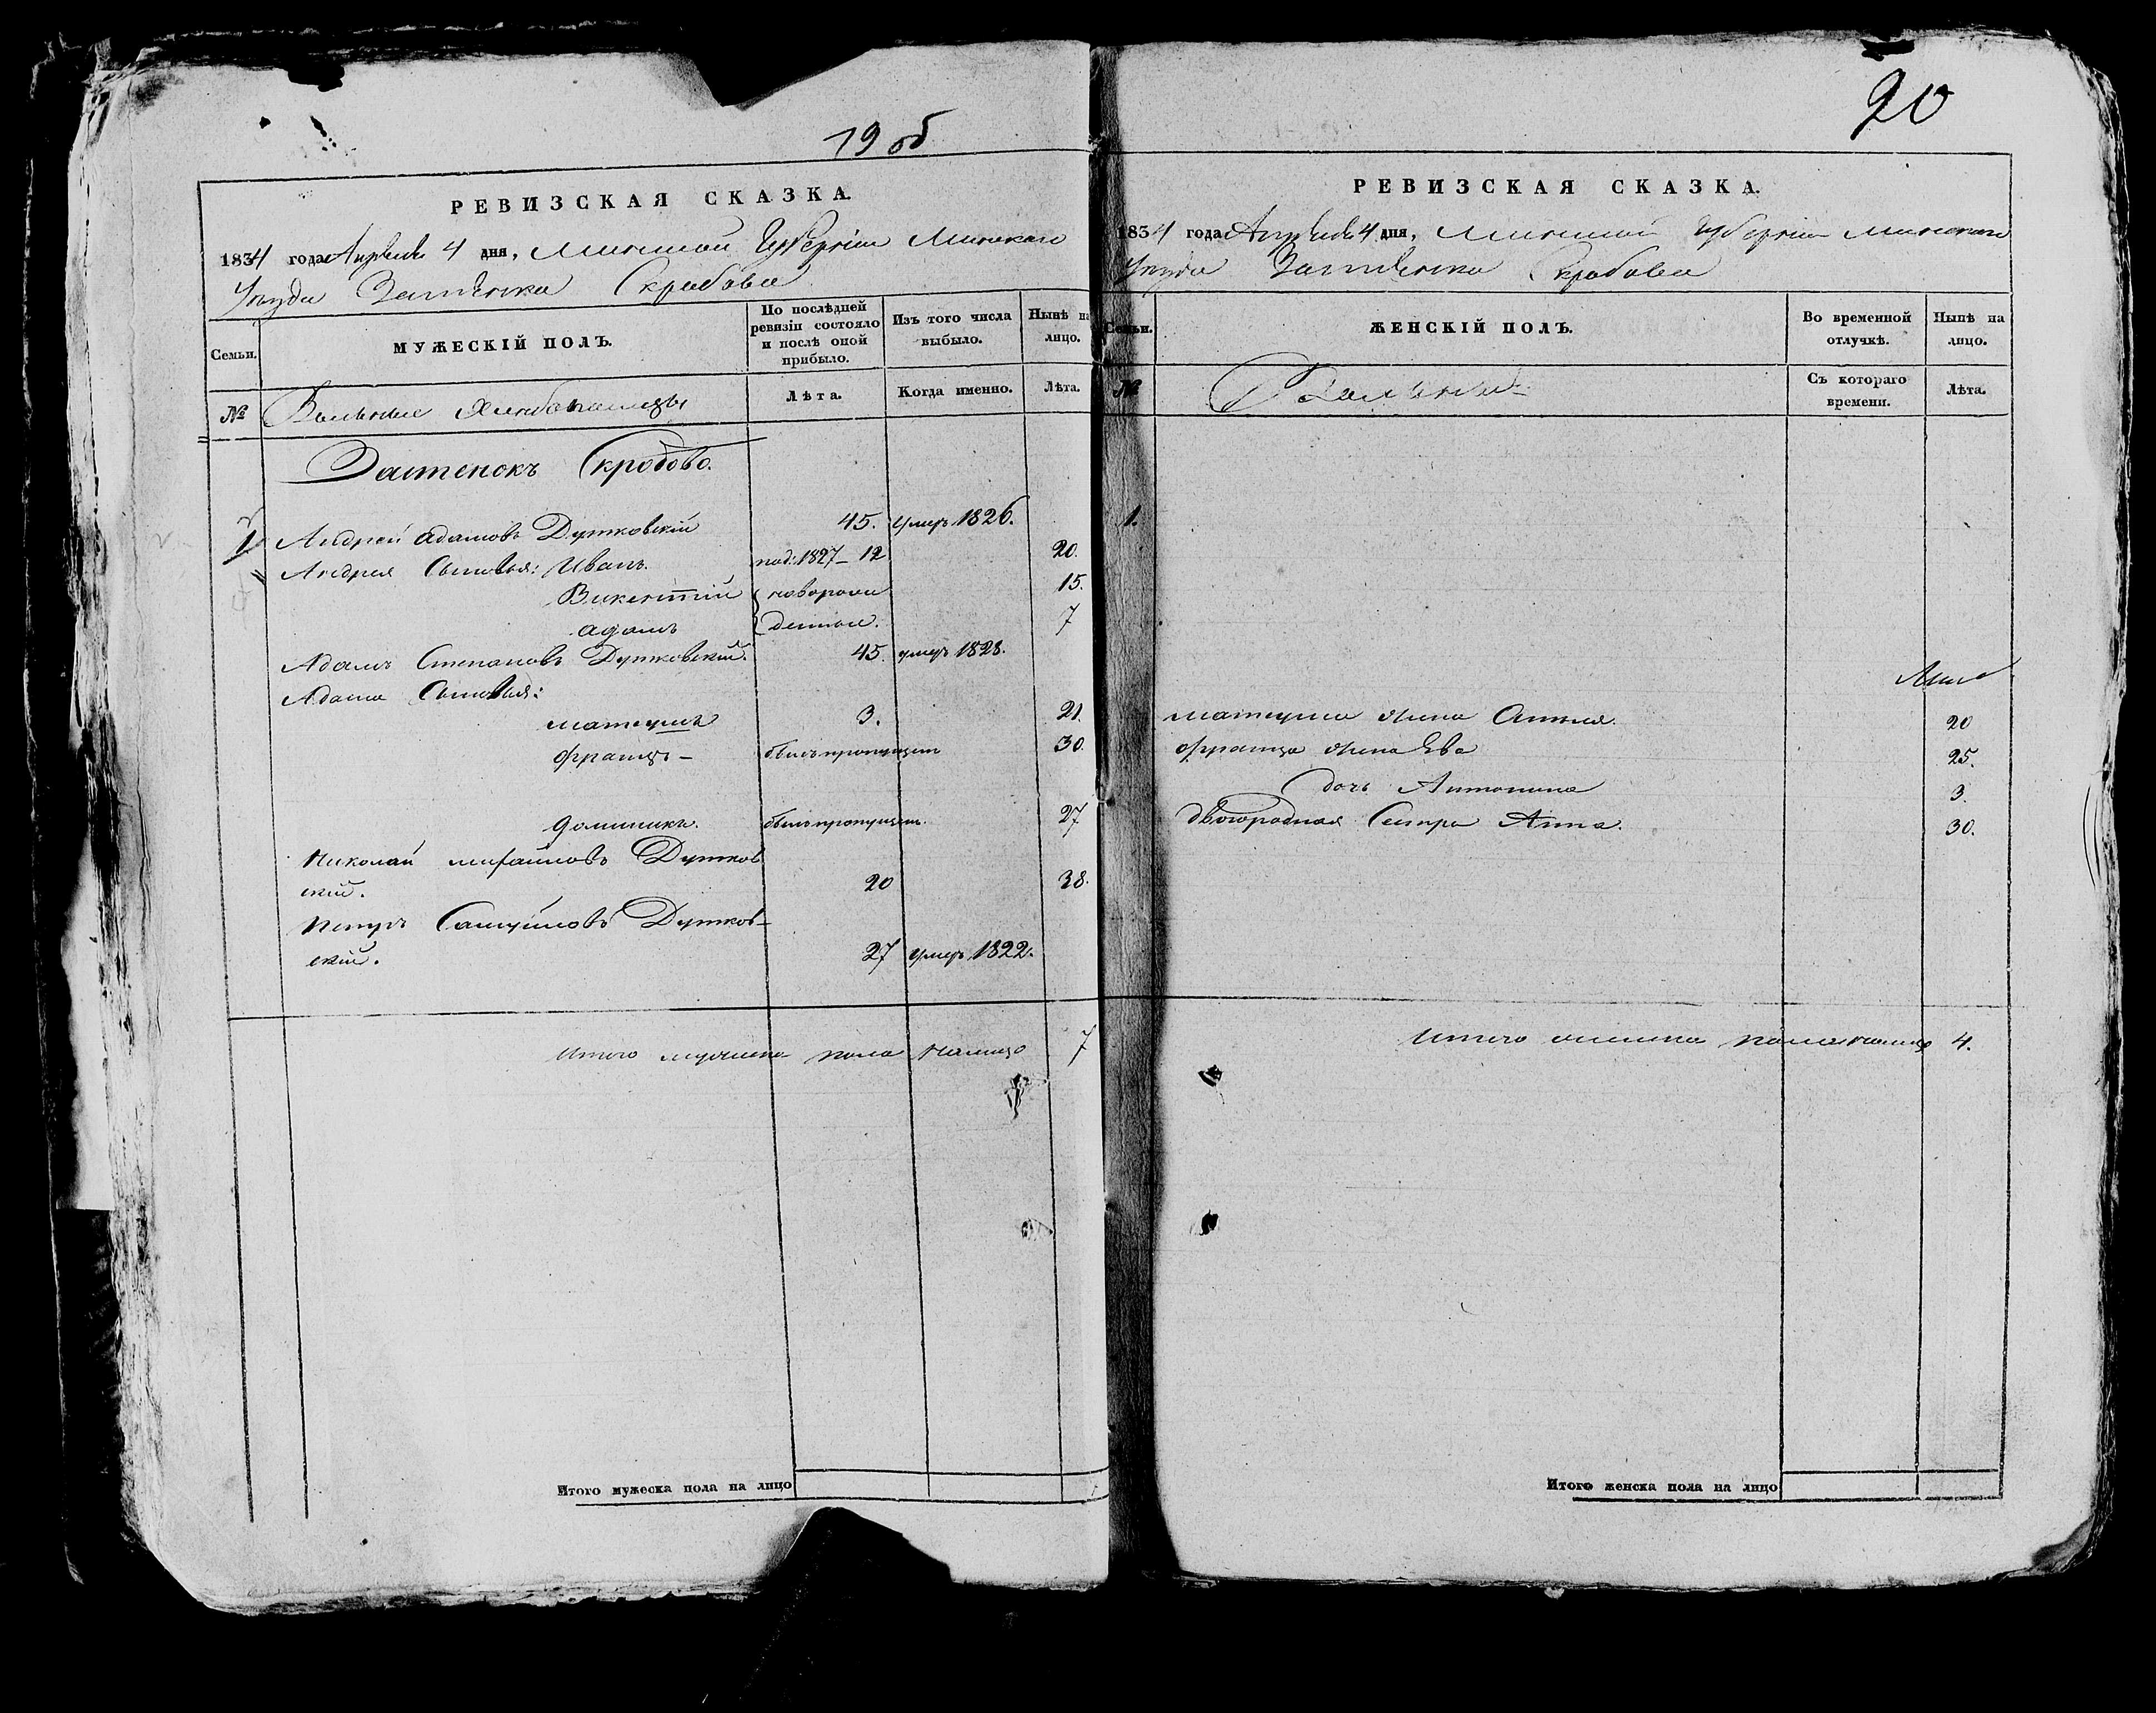 19 об
РЕВИЗСКАЯ СКАЗКА.
1834 года Апреля 4 дня, Минской Губернии Минскаго
Уезда Застенка Скробова
Семьи.
МУЖЕСКІЙ ПОЛЪ.
По послѣдней ревизіи состояло и послѣ оной прибыло.
Изъ того числа выбыло.
Нынѣ на лицо.
№
Вольные Хлебопашцы
Лѣта.
Когда именно.
Лѣта.
Застенокъ Скробово.
1 Андрей Адамовъ Дутковскій 45. умеръ 1826.
Андрея Сыновья: Иванъ. 1827 – 12 20.
Викентий новорож 15.
Адамъ денные. 7
Адамъ Степановъ Дутковский. 45. умеръ 1828.
Адама Сыновья:
Матеушъ 3. 21.
Францъ – былъ пропущен 30.
Доминикъ. былъ пропущен. 27
Николай Михайловъ Дутков
ский. 20 38.
Петръ Самуйловъ Дутков-
ский. 27 умеръ 1822.
Итого мужеска пола налицо 7
Итого мужеска пола на лицо
20
РЕВИЗСКАЯ СКАЗКА.
1834 года Апреля 4 дня, Минской Губернии Минскаго
Уезда Застенка Скробова
Семьи.
ЖЕНСКІЙ ПОЛЪ.
Во временной отлучкѣ.
Нынѣ на лицо.
№
Съ котораго времени.
Лѣта.
1.
Матеуша жена Анеля. 20
Франца жена Ева 25.
дочь Антонина 3.
двоюродная Сестра Анна. 30.
Итого женска пола налицо 4.
Итого женска пола на лицо